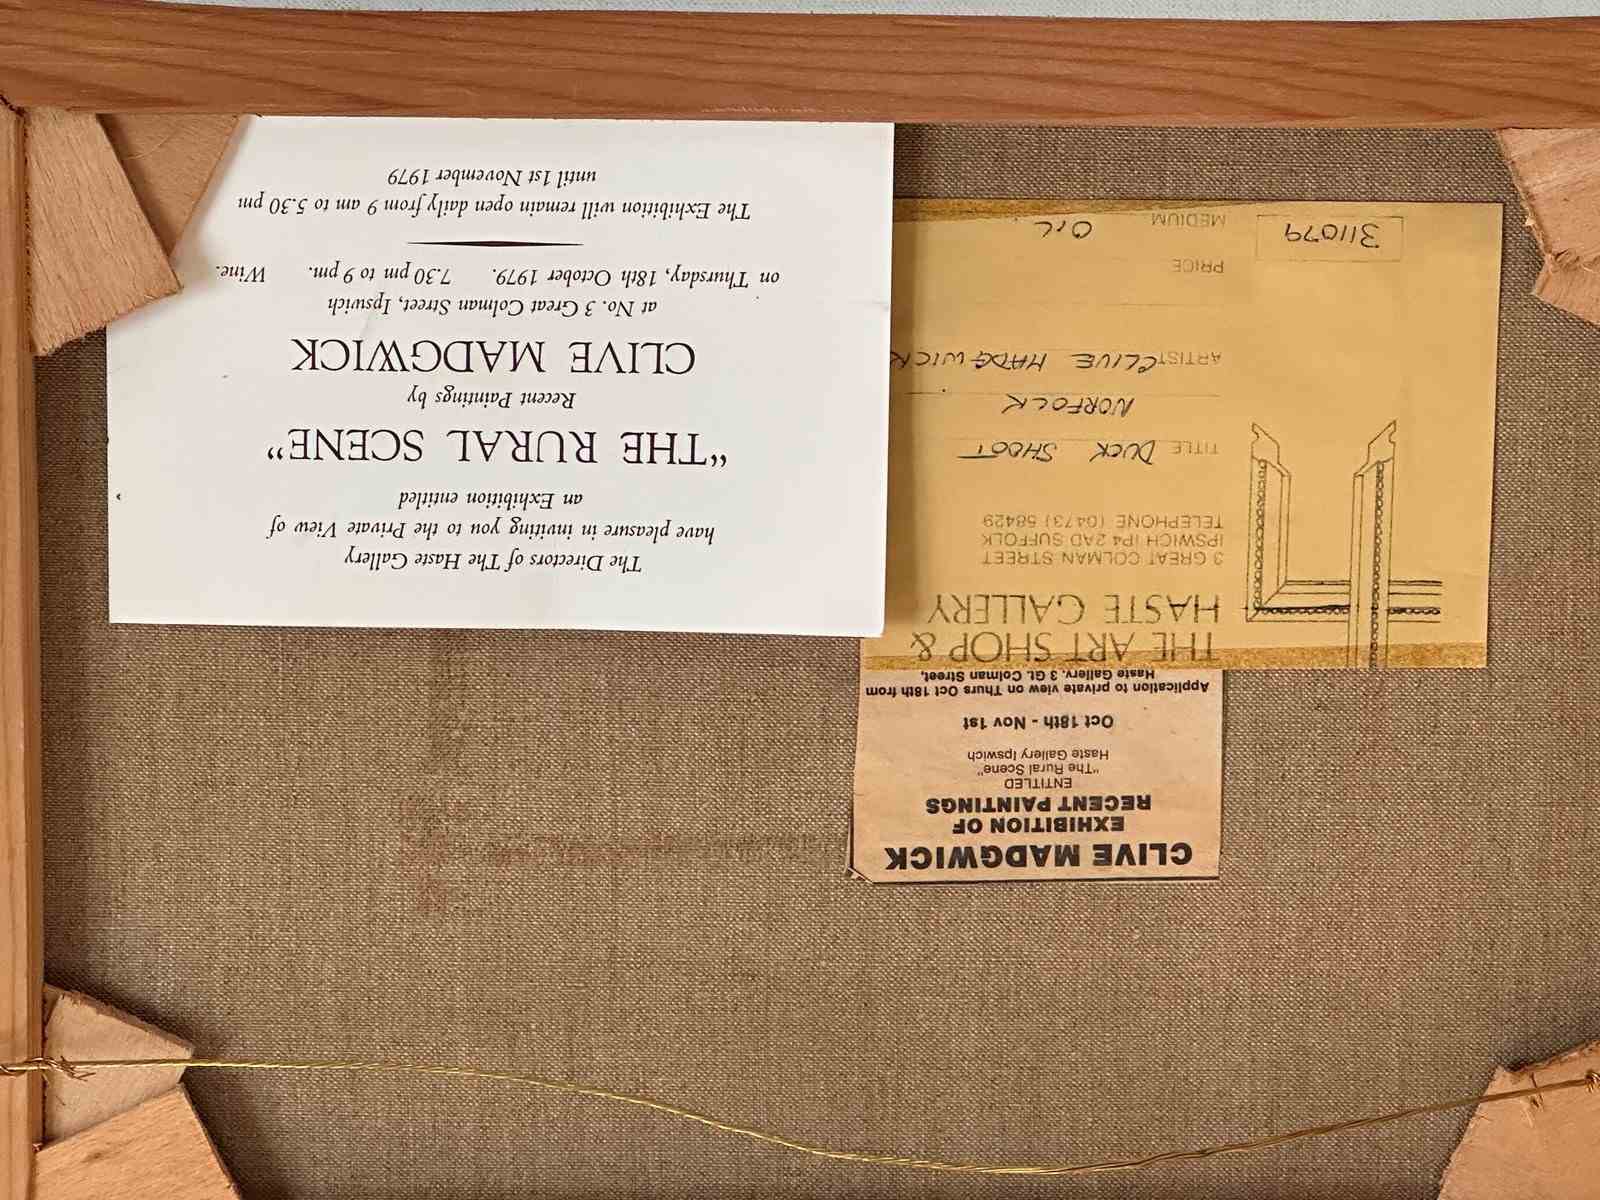 The Directors of The Haste Gallery
have pleasure in inviting you to the Private View of
an Exhibition entitled
“THE RURAL SCENE”
Recent Paintings by
CLIVE MADGWICK
at No. 3 Great Colman Street, Ipswich
on Thursday, 18th October 1979. 7.30 pm to 9 pm. Wine.
The Exhibition will remain open daily from 9 am to 5.30 pm
until 1st November 1979
CLIVE MADGWICK
EXHIBITION OF
RECENT PAINTINGS
ENTITLED
"The Rural Scene"
Haste Gallery Ipswich
Oct 18th - Nov 1st
Application to private view on Thurs Oct 18th from
Haste Gallery, 3 Gt. Colman Street,
THE ART SHOP &
HASTE GALLERY
3 GREAT COLMAN STREET
IPSWICH IP4 2AD SUFFOLK
TELEPHONE (0473) 58429
TITLE DUCK SHOOT
NORFOLK
ARTIST CLIVE MADGWICK
PRICE
MEDIUM OIL
311079